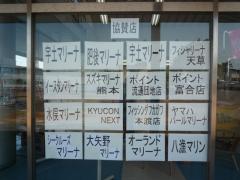 協賛店
宇土マリーナ
肥後マリーナ
宇土マリーナ
フィッシャリーナ
天草
イースタンマリーナ
スズキマリーナ
熊本
ポイント
流通団地店
ポイント
富合店
水俣マリーナ
KYUCON
NEXT
フィッシングフカガワ
本渡店
ヤマハ
パールマリーナ
シークルーズ
マリーナ
大矢野
マリーナ
オーランド
マリーナ
八漁マリン